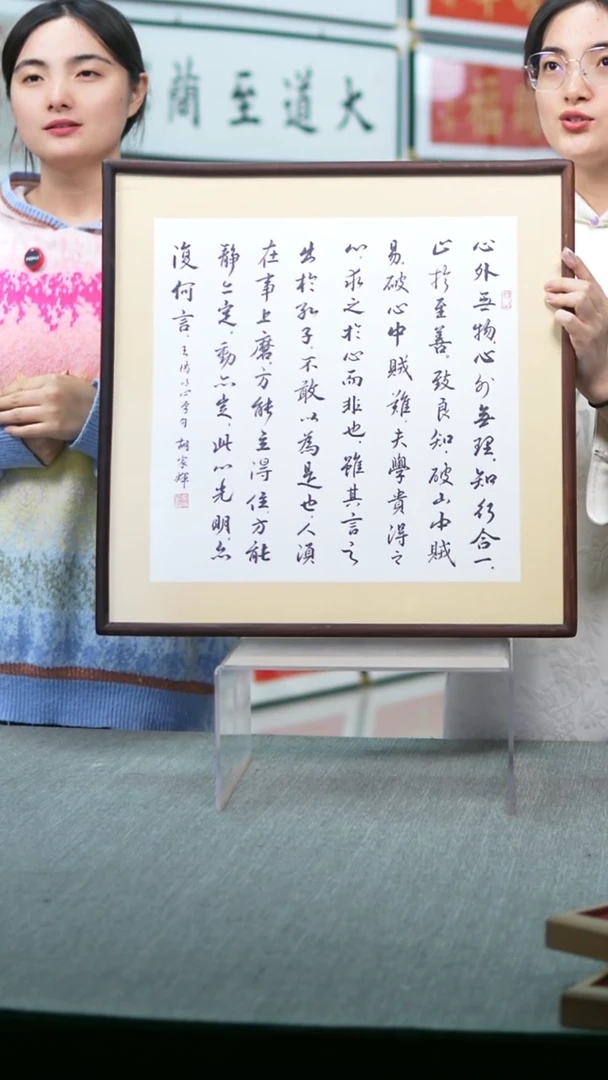 大道至簡
福
心外無物心外無理知行合一
止於至善致良知破山中賊
易破心中賊難夫學貴得之
心求之於心而非也雖其言之
出於孔子不敢以為是也人須
在事上磨方能立得住方能
靜亦定動亦定此心光明亦
復何言
王陽明心學句 胡家輝